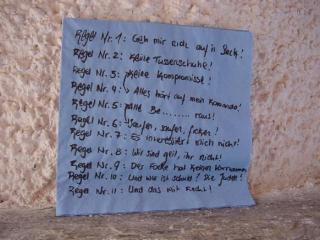 Regel Nr. 1: Geh mir auf'n Sack!
Regel Nr. 2: Keine Tussenschuhe!
Regel Nr. 3: Keine Kompromisse!
Regel Nr. 4: Alles hört auf mein Kommando!
Regel Nr. 5: Be........ raus!
Regel Nr. 6: Saufen, saufen,
Regel Nr. 7: Es interessiert mich nicht!
Regel Nr. 8: Wir sind geil, ihr nicht!
Regel Nr. 9: Der hat keinen Vornamen
Regel Nr. 10: Und wer ist schuld? Die
Regel Nr. 11: Und das mit Recht!